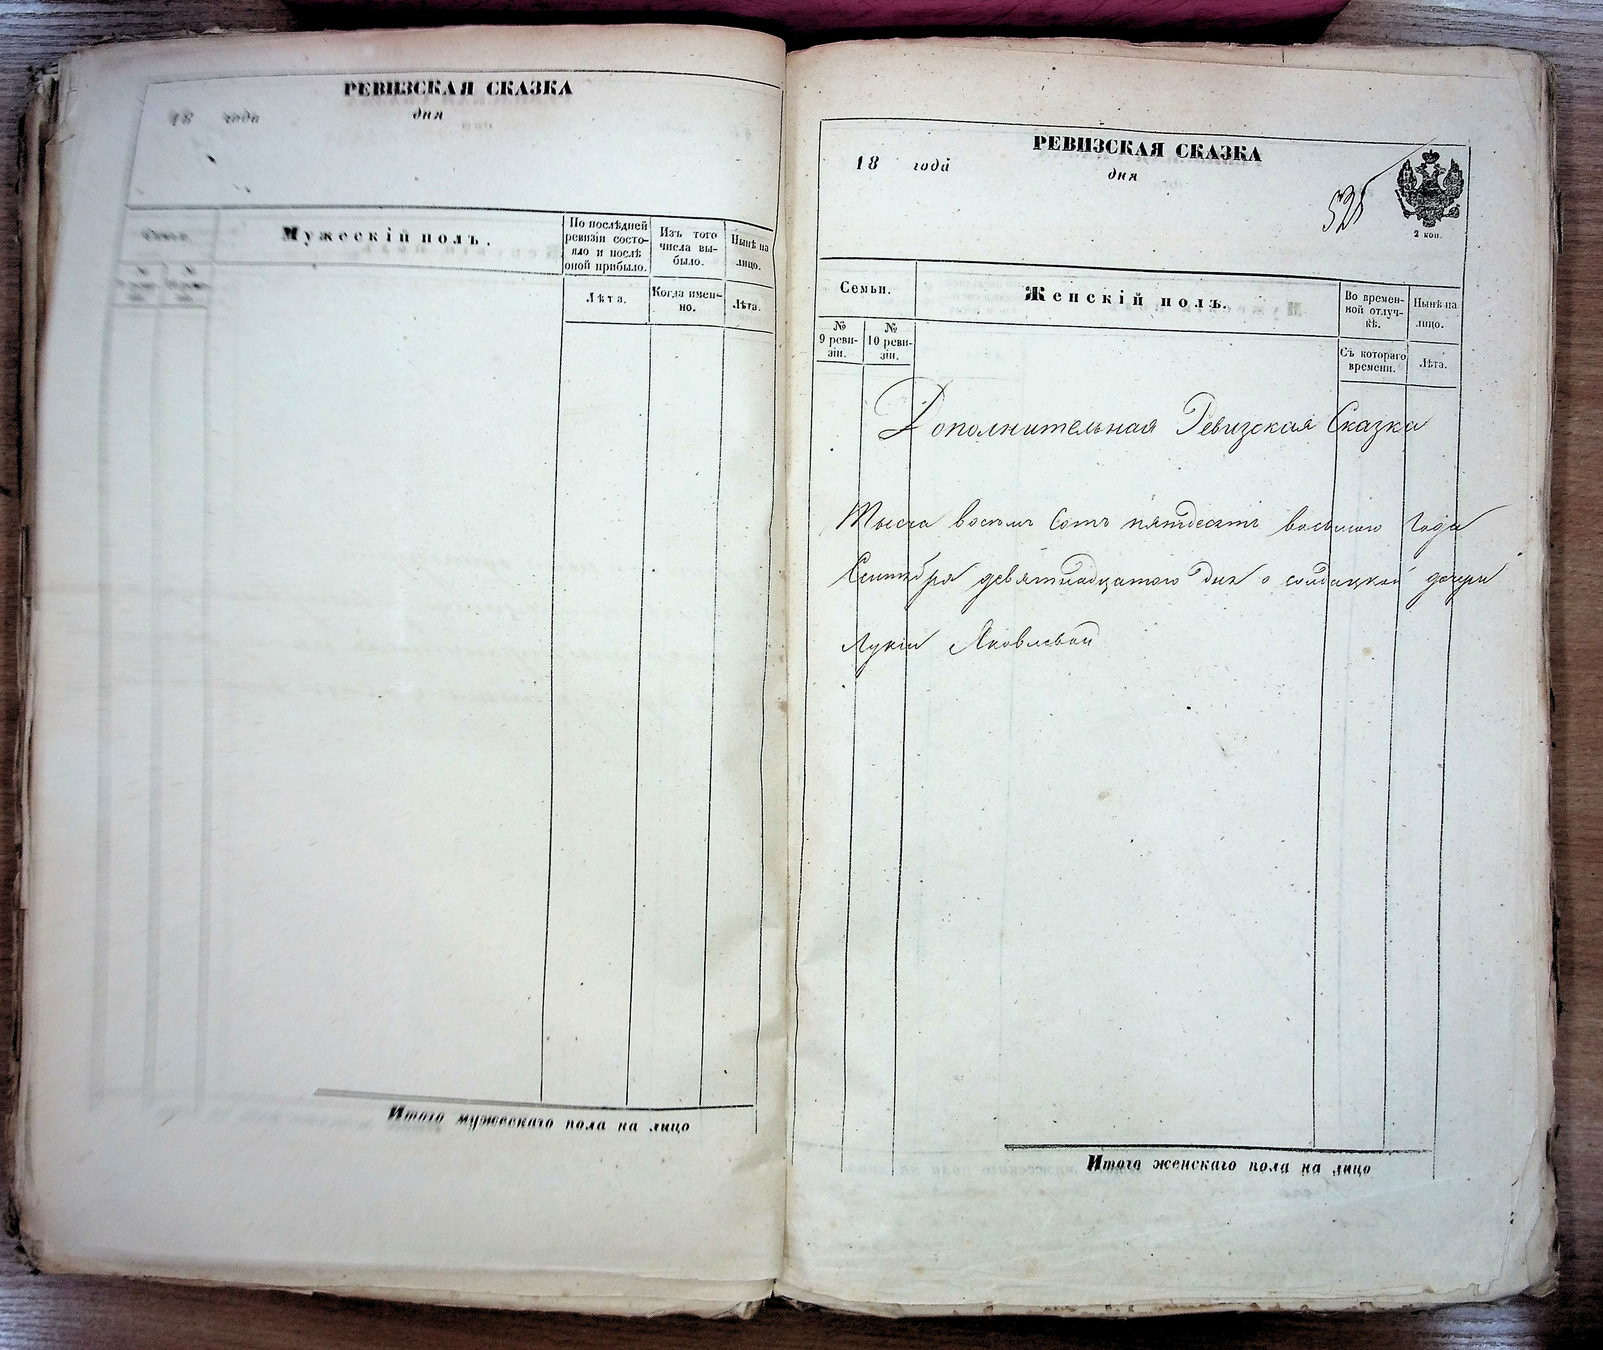 РЕВИЗСКАЯ СКАЗКА
18 года
дня
Семьи.
Мужескій полъ.
По послѣдней ревизіи состояло и послѣ оной прибыло.
Изъ того числа выбыло.
Нынѣ на лицо.
Лѣта.
Когда именно.
Лѣта.
Итого мужескаго пола на лицо
РЕВИЗСКАЯ СКАЗКА
18 года
дня
2 коп.
Семьи.
Женскій полъ.
Во временной отлучкѣ.
Нынѣ на лицо.
№ 9 ревизіи.
№ 10 ревизіи.
Съ котораго времени.
Лѣта.
Дополнительная Ревизская Сказка
Тысеча восемь сотъ пятдесятъ восьмого года
Сентября девятнадцатого дня о солдацкой дочери
Лукіи Яковлевой
Итого женскаго пола на лицо